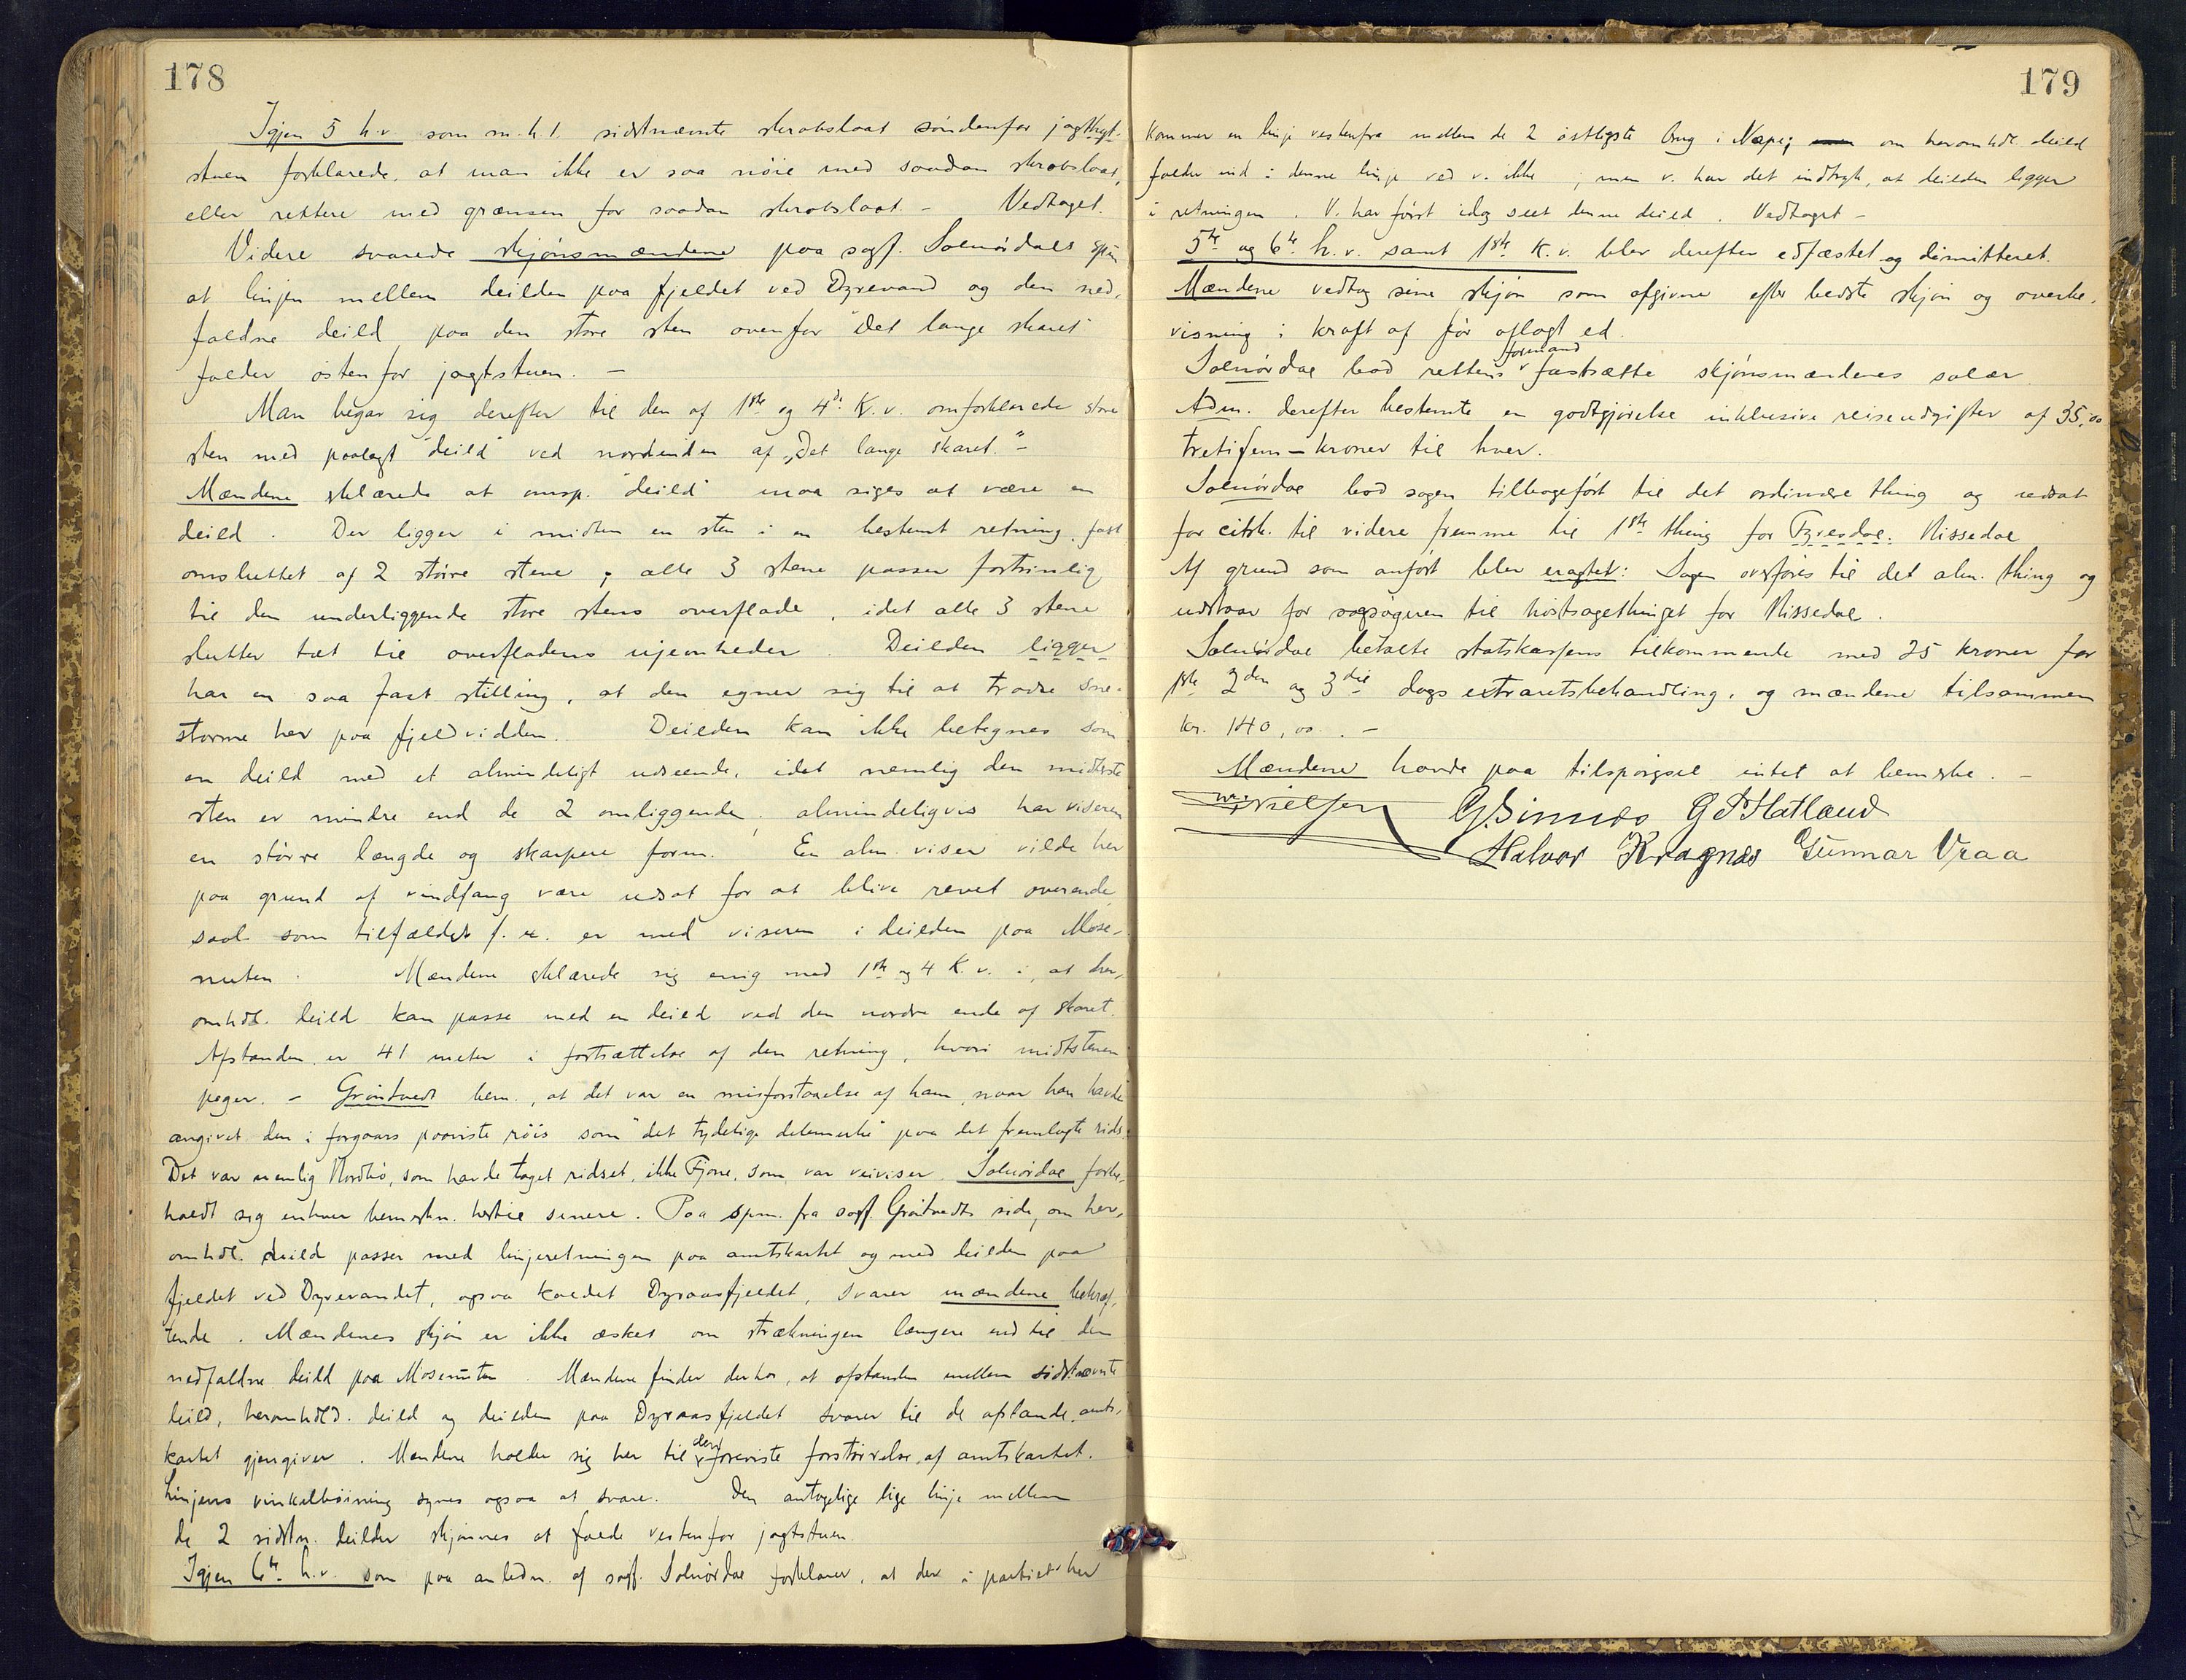 178
Igjen 5 h.v. som m.h.t. sidstnævnte skrabslaat søndenfor jagthyt-
stuen forklarede, at man ikke er saa nöie med saadan skrabslaat,
eller rettere med grænsen for saadan skrabslaat – Vedtaget.
Videre svarede skjönsmændene paa sagf. Solnördals spm,
at linjen mellem deilden paa fjeldet ved Dyrevand og den ned-
faldne deild paa den store sten ovenfor "Det lange skaret"
falder östenfor jagtstuen. –
Man begav sig derefter til den af 1ste og 4de K.v. omforklarede store
sten med paalagt "deild" ved nordenden af "Det lange skaret." –
Mændene erklærede at omsp. "deild" maa siges at være en
deild. Der ligger i midten en sten i en bestemt retning, fast
omsluttet af 2 större stene; alle 3 stene passer fortrinlig
til den underliggende store stens overflade, idet alle 3 stene
slutter tæt til overfladens ujevnheder. Deilden ligger
har en saa fast stilling, at den egner sig til at trodse sne-
storme her paa fjeldvidden. Deilden kan ikke betegnes som
en deild med et almindeligt udseende, idet nemlig den midterste
sten er mindre end de 2 omliggende; almindeligvis har viseren
en större længde og skarpere form. En alm. viser vilde her
paa grund af vindfang være udsat for at blive revet overende,
saal. som tilfældet f. x. er med viseren i deilden paa Mose-
nuten. Mændene erklærede sig enig med 1ste og 4 K.v. i, at her-
omhdl. deild kan passe med en deild ved den nordre ende af skaret.
Afstanden er 41 meter i fortsættelse af den retning, hvori midtstenen
peger. – Gröitvedt bem., at det var en misforstaaelse af ham, naar han havde
angivet den i forgaars paaviste röis som "det tydelige delemerke" paa det fremlagte rids.
Det var nemlig Nordbö, som havde taget ridset, ikke Fjone, som var veiviser. Solnördal forbe-
holdt sig enhver bemerkn. hertil senere. Paa spm. fra sagf. Gröitvedts side, om her-
omhdl. deild passer med linjeretningen paa amtskartet og med deilden paa
fjeldet ved Dyrevandet, ogsaa kaldet Dyraasfjeldet, svarer mændene bekræf-
tende. Mændenes skjön er ikke æsket om strækningen længere end til den
nedfaldne deild paa Mosenuten. Mændene finder derhos, at afstanden mellem sidstnævnte
deild, heromhdld. deild og deilden paa Dyraasfjeldet svarer til de afstande, amts-
kartet gjengiver. Mændene holder sig her til den foreviste forstörrelse af amtskartet.
Linjens vinkelböining synes ogsaa at svare. Den antagelige lige linje mellem
de 2 sidstn. deilder skjönnes at falde vestenfor jagtstuen.
Igjen 6te h.v. som paa anledn. af sagf. Solnördal forklarer, at der i partiet her
179
kommer en linje vestenfra mellem de 2 östligste brug i Næpe; om heromhdl. deild
falder ind i denne linje ved v. ikke; men v. har det indtryk, at deilden ligger
i retningen. V. har först idag seet denne deild. Vedtaget –
5te og 6te h.v. samt 1ste K.v. blev derefter edfæstet og dimitteret.
Mændene vedtog sine skjön som afgivne efter bedste skjön og overbe-
visning i kraft af för aflagt ed.
Solnördal bad rettens formand fastsætte skjönsmændenes salær.
Adm. derefter bestemte en godtgjörelse inklusive reiseudgifter af 35,00
tretifem – kroner til hver.
Solnördal bad sagen tilbageført til det ordinære thing og udsat
for citsk. til videre fremme til 1ste thing for Fyresdal. Nissedal
Af grund som anfört blev eragtet: Sagen overföres til det alm. thing og
udstaar for sagsögeren til höstsagethinget for Nissedal.
Solnördal betalte statskassens tilkommende med 25 kroner for
1ste 2den og 3die dags extraretsbehandling, og mændene tilsammen
kr. 140,00. –
Mændene havde paa tilspörgsel intet at bemerke. –
Nielsen G. Simnes G P Hatland
Halvor Kragnæs Gunnar Vraa